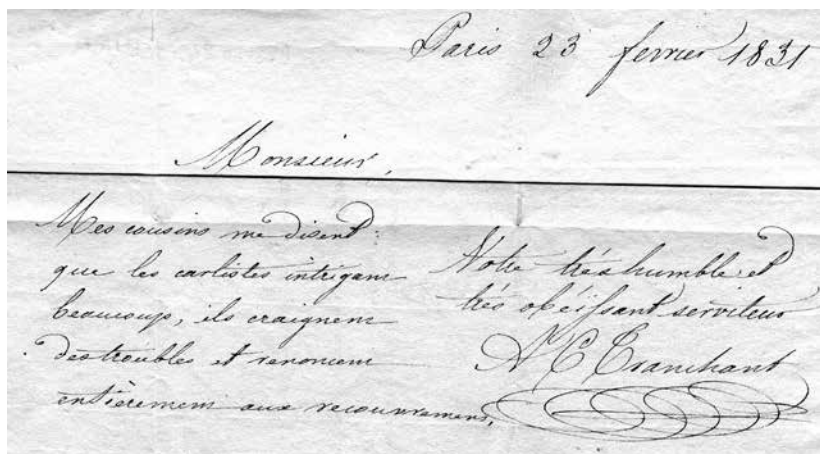 Paris 23 fevrier 1831
Monsieur,
Mes cousins me disent
que les carlistes intrigant
beaucoup, ils craignent
des troubles et renoncent
entièrement aux recouvremens,
Votre très humble et
très obéissant serviteur
A C Tranchant